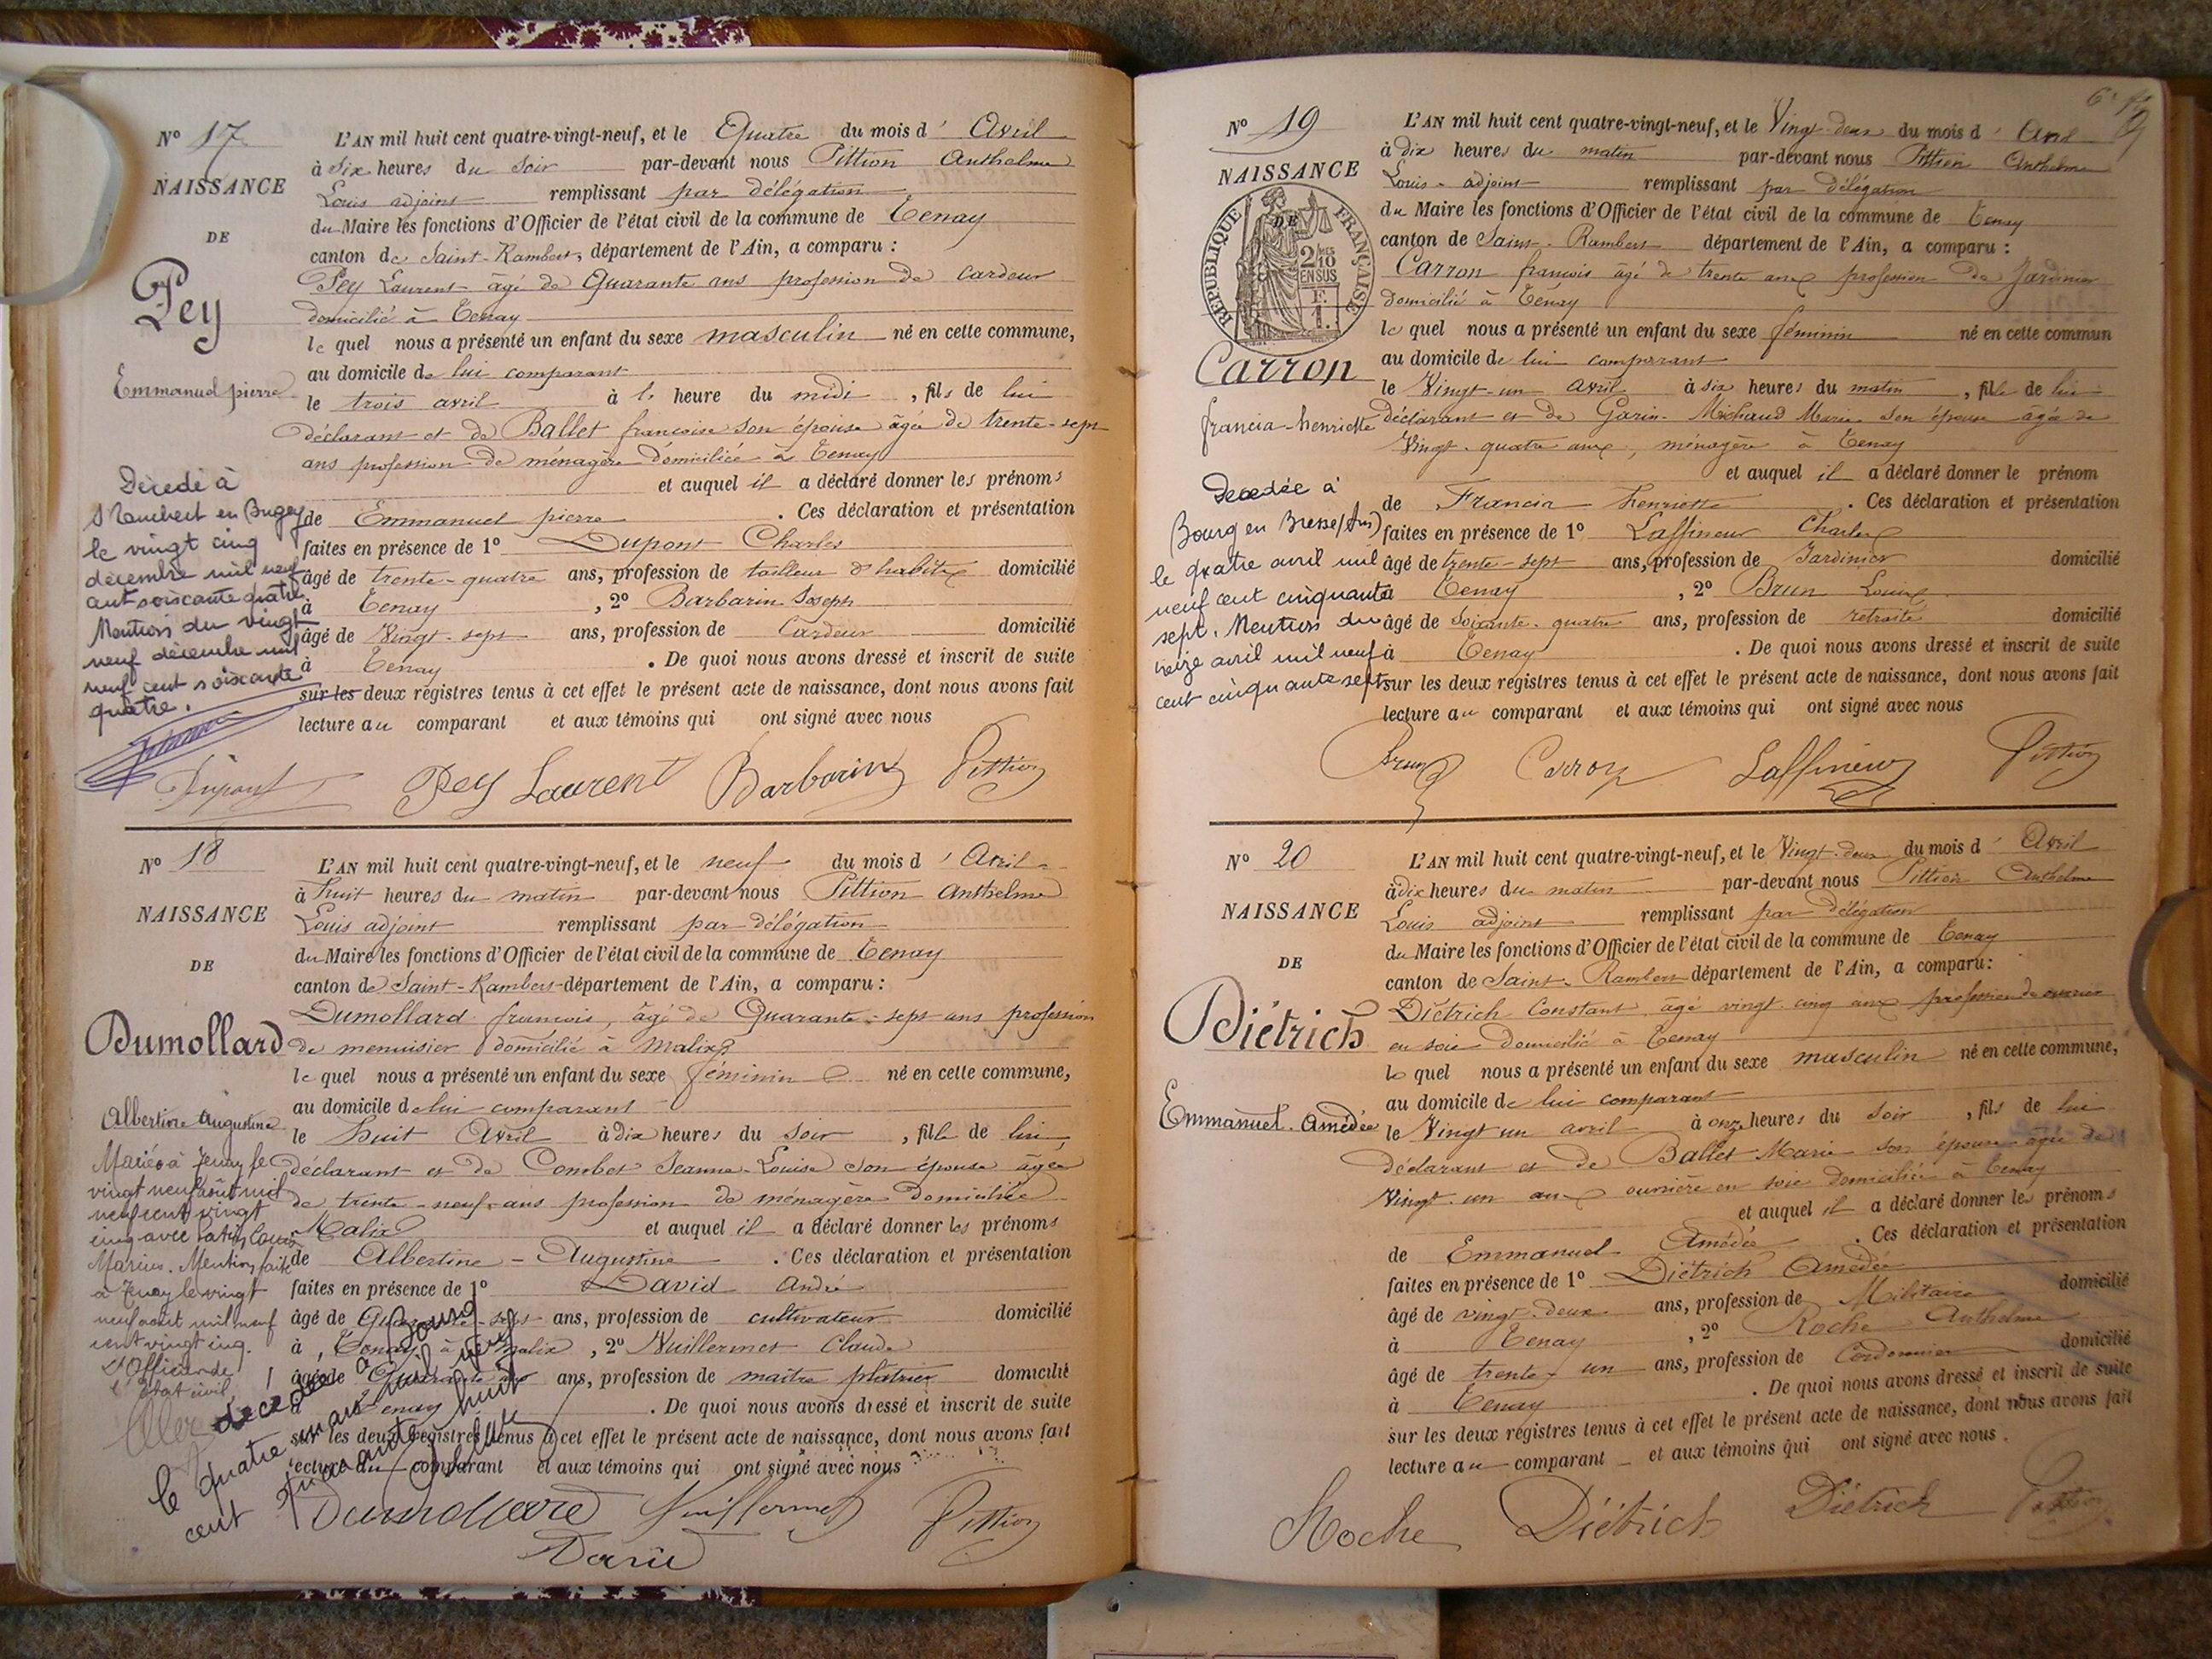 Nº 17
NAISSANCE
DE
Pey
Emmanuel pierre
Décédé à
St Rambert en Bugey
le vingt cinq
décembre mil neuf
cent soixante quatre
Mention du vingt
neuf décembre mil
neuf cent soixante
quatre.
L'AN mil huit cent quatre-vingt-neuf, et le Quatre du mois d' Avril
à Six heures du Soir par-devant nous Pittion Anthelme
Louis adjoint remplissant par délégation
du Maire les fonctions d'Officier de l'état civil de la commune de Tenay
canton de Saint-Rambert, département de l'Ain, a comparu :
Pey Laurent âgé de Quarante ans profession de Cardeur
domicilié à Tenay
le quel nous a présenté un enfant du sexe masculin né en cette commune,
au domicile de lui comparant
le trois avril à heure du midi, fils de lui
déclarant et de Ballet françoise son épouse âgée de trente-sept
ans profession de ménagère domiciliée à Tenay
et auquel il a déclaré donner les prénoms
de Emmanuel pierre. Ces déclaration et présentation
faites en présence de 1º Dupont Charles
âgé de trente-quatre ans, profession de tailleur d'habits domicilié
à Tenay, 2º Barbarin Joseph
âgé de Vingt-sept ans, profession de Cardeur domicilié
à Tenay. De quoi nous avons dressé et inscrit de suite
sur les deux registres tenus à cet effet le présent acte de naissance, dont nous avons fait
lecture au comparant et aux témoins qui ont signé avec nous
Dupont Pey Laurent Barbarin Pittion
Nº 18
NAISSANCE
DE
Dumollard
Albertine Augustine
Mariée à Tenay le
vingt neuf août mil
neuf cent vingt
cinq avec Louis
Marius. Mention faite
à Tenay le vingt
neuf août mil neuf
cent vingt cinq.
L'Officier de
l'état civil,
décédée à Bourg
le quatre mars mil neuf
cent quarante huit
L'AN mil huit cent quatre-vingt-neuf, et le neuf du mois d' Avril
à huit heures du matin par-devant nous Pittion Anthelme
Louis adjoint remplissant par délégation
du Maire les fonctions d'Officier de l'état civil de la commune de Tenay
canton de Saint-Rambert département de l'Ain, a comparu :
Dumollard françois, âgé de Quarante-sept ans profession
de menuisier domicilié à Malix
le quel nous a présenté un enfant du sexe féminin né en cette commune,
au domicile de lui comparant
le huit Avril à dix heures du soir, fille de lui
déclarant et de Combet Jeanne-Louise son épouse âgée
de trente-neuf ans profession de ménagère domiciliée
Malix et auquel il a déclaré donner les prénoms
de Albertine-Augustine. Ces déclaration et présentation
faites en présence de 1º David André
âgé de ans, profession de cultivateur domicilié
à Tenay à Malix, 2º Vuillermet Claude
âgé de Quarante ans, profession de maître plâtrier domicilié
à Tenay. De quoi nous avons dressé et inscrit de suite
sur les deux registres tenus à cet effet le présent acte de naissance, dont nous avons fait
lecture au comparant et aux témoins qui ont signé avec nous
Dumollard Vuillermet Pittion
David
Nº 19
NAISSANCE
DE
RÉPUBLIQUE FRANÇAISE
2/10
EN SUS
Carron
francia-henriette
Décédée à
Bourg en Bresse (Ain)
le quatre avril mil
neuf cent cinquante
sept. Mention du
treize avril mil neuf
cent cinquante sept
L'AN mil huit cent quatre-vingt-neuf, et le Vingt-deux du mois d'
à dix heures du matin par-devant nous Pittion Anthelme
Louis-adjoint remplissant par délégation
du Maire les fonctions d'Officier de l'état civil de la commune de Tenay
canton de Saint-Rambert département de l'Ain, a comparu :
Carron françois âgé de trente ans profession de Jardinier
domicilié à Tenay
le quel nous a présenté un enfant du sexe féminin né en cette commun
au domicile de lui comparant
le Vingt-un avril à six heures du matin, fille de lui
déclarant et de Garin-Michaud Marie son épouse âgée de
Vingt-quatre ans, ménagère à Tenay
et auquel il a déclaré donner le prénom
de Francia henriette. Ces déclaration et présentation
faites en présence de 1º Laffineur Charles
âgé de trente-sept ans, profession de Jardinier domicilié
à Tenay, 2º Brun Louis
âgé de Soixante-quatre ans, profession de retraité domicilié
à Tenay. De quoi nous avons dressé et inscrit de suite
sur les deux registres tenus à cet effet le présent acte de naissance, dont nous avons fait
lecture au comparant et aux témoins qui ont signé avec nous
Brun Carron Laffineur Pittion
Nº 20
NAISSANCE
DE
Diétrich
Emmanuel-Amédée
L'AN mil huit cent quatre-vingt-neuf, et le Vingt-deux du mois d' Avril
à dix heures du matin par-devant nous Pittion Anthelme
Louis adjoint remplissant par délégation
du Maire les fonctions d'Officier de l'état civil de la commune de Tenay
canton de Saint-Rambert département de l'Ain, a comparu :
Diétrich Constant âgé vingt cinq ans profession de ouvrier
en soie domicilié à Tenay
le quel nous a présenté un enfant du sexe masculin né en cette commune,
au domicile de lui comparant
le Vingt un avril à onze heures du soir, fils de lui
déclarant et de Ballet Marie son épouse âgée de
Vingt-un ans ouvrière en soie domiciliée à Tenay
et auquel il a déclaré donner les prénoms
de Emmanuel Amédée. Ces déclaration et présentation
faites en présence de 1º Diétrich Amédée
âgé de vingt-deux ans, profession de Militaire domicilié
à Tenay, 2º Roche Anthelme
âgé de trente-un ans, profession de Cordonnier domicilié
à Tenay. De quoi nous avons dressé et inscrit de suite
sur les deux registres tenus à cet effet le présent acte de naissance, dont nous avons fait
lecture au comparant et aux témoins qui ont signé avec nous.
Roche Diétrich Diétrich Pittion